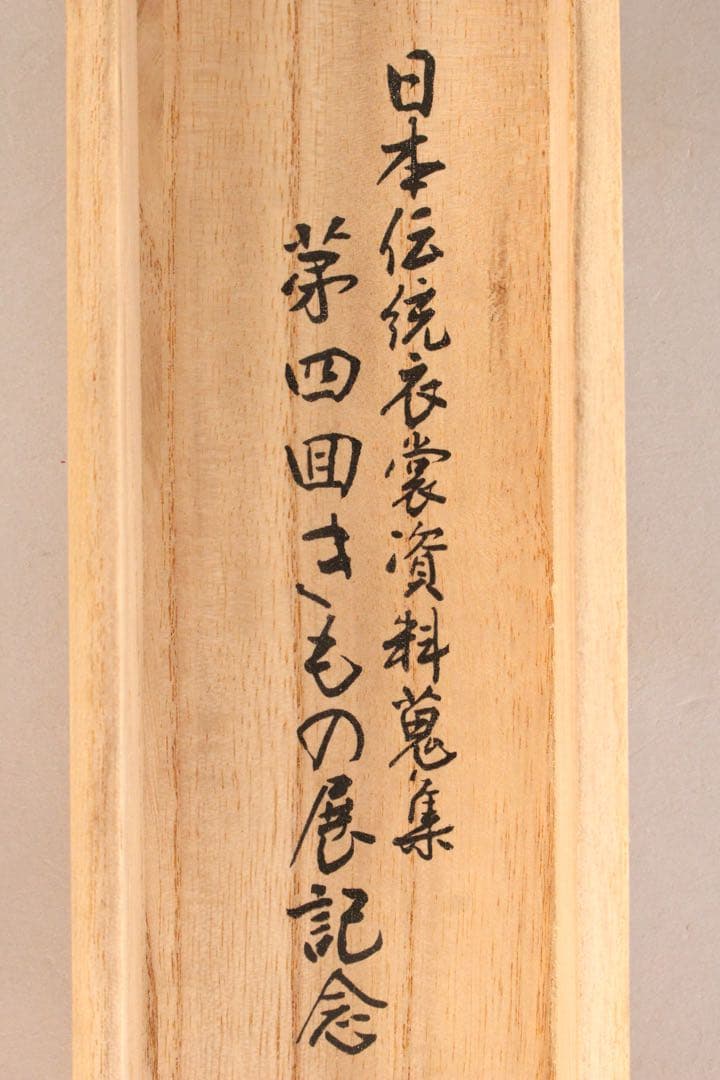 日本伝統衣裳資料蒐集
第四回きもの展記念